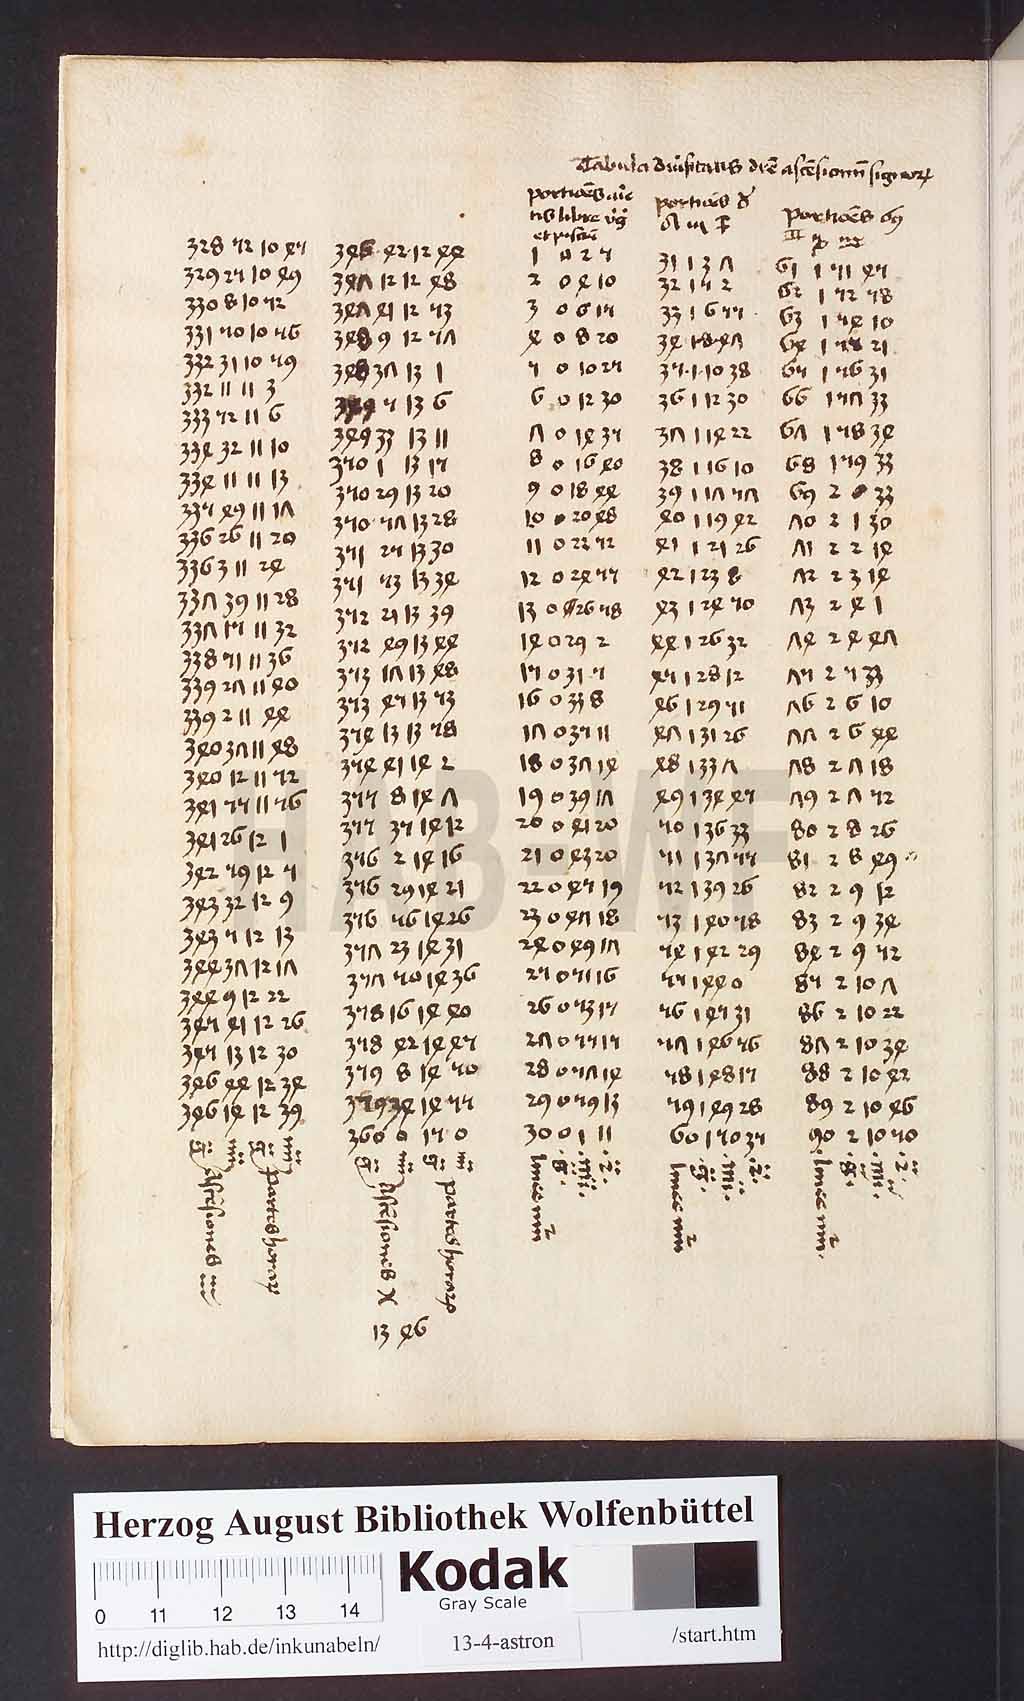 Tabula diusitatis drē ascēsionū signorꝝ
328 52 10 45
329 25 10 49
330 8 10 52
331 50 10 56
332 31 10 59
332 11 11 3
333 52 11 6
334 32 11 10
334 11 11 13
335 49 11 17
336 26 11 20
336 3 11 24
337 39 11 28
337 15 11 32
338 51 11 36
339 27 11 40
339 2 11 44
340 37 11 48
340 12 11 52
341 55 11 56
341 26 12 1
342 59 12 5
343 32 12 9
343 5 12 13
344 37 12 17
344 9 12 22
345 41 12 26
345 13 12 30
346 44 12 34
346 14 12 39
Ascēsiones
partes horarꝝ
346 42 12 44
347 12 12 48
347 41 12 53
348 9 12 57
348 37 13 1
349 5 13 6
349 33 13 11
350 1 13 15
350 29 13 20
350 57 13 28
351 25 13 30
351 53 13 34
352 21 13 39
352 49 13 44
353 17 13 48
353 45 13 53
354 13 13 58
354 41 14 2
355 8 14 7
355 35 14 12
356 2 14 16
356 29 14 21
356 56 14 26
357 23 14 31
357 50 14 36
358 16 14 40
358 42 14 45
359 8 14 50
359 34 14 55
360 0 15 0
Ascēsiones
partes horarꝝ
13 46
portiōēs arie
tis libre vigī
et pisciū
1 0 2 5
2 0 4 10
3 0 6 15
4 0 8 20
5 0 10 25
6 0 12 30
7 0 14 35
8 0 16 40
9 0 18 44
10 0 20 48
11 0 22 52
12 0 24 55
13 0 26 58
14 0 29 2
15 0 31 5
16 0 33 8
17 0 35 11
18 0 37 14
19 0 39 17
20 0 41 20
21 0 43 20
22 0 45 19
23 0 47 18
24 0 49 17
25 0 51 16
26 0 53 15
27 0 55 15
28 0 57 14
29 0 59 13
30 0 1 11
portiōēs ♉
♌ ♏ ♒
31 1 3 7
32 1 5 2
33 1 6 55
34 1 8 47
35 1 10 38
36 1 12 30
37 1 14 22
38 1 16 10
39 1 17 57
40 1 19 42
41 1 21 26
42 1 23 8
43 1 24 50
44 1 26 32
45 1 28 12
46 1 29 51
47 1 31 26
48 1 33 7
49 1 34 45
50 1 36 33
51 1 37 55
52 1 39 26
53 1 40 58
54 1 42 29
55 1 44 0
56 1 45 31
57 1 46 56
58 1 48 15
59 1 49 28
60 1 50 35
Portiōēs ♋
♊ ♐ ♑
61 1 51 45
62 1 52 58
63 1 54 10
64 1 55 21
65 1 56 31
66 1 57 33
67 1 58 34
68 1 59 33
69 2 0 33
70 2 1 30
71 2 2 14
72 2 3 14
73 2 4 1
74 2 4 47
75 2 5 33
76 2 6 10
77 2 6 44
78 2 7 18
79 2 7 52
80 2 8 26
81 2 8 49
82 2 9 12
83 2 9 34
84 2 9 52
85 2 10 7
86 2 10 22
87 2 10 34
88 2 10 42
89 2 10 46
90 2 10 50
Herzog August Bibliothek Wolfenbüttel
Kodak
Gray Scale
0 11 12 13 14
http://diglib.hab.de/inkunabeln/
13-4-astron
/start.htm